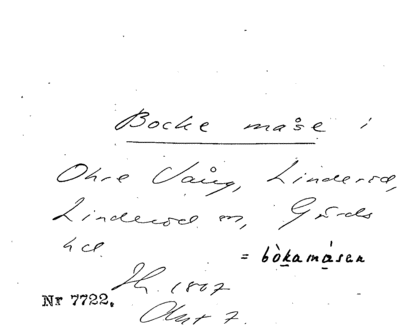 Bocke måse i
Ohre Vång, Linderöd,
Linderöd sn, Gärds
hd.
= bòkamåsen
1807
Nr 7722.
Akt 7.